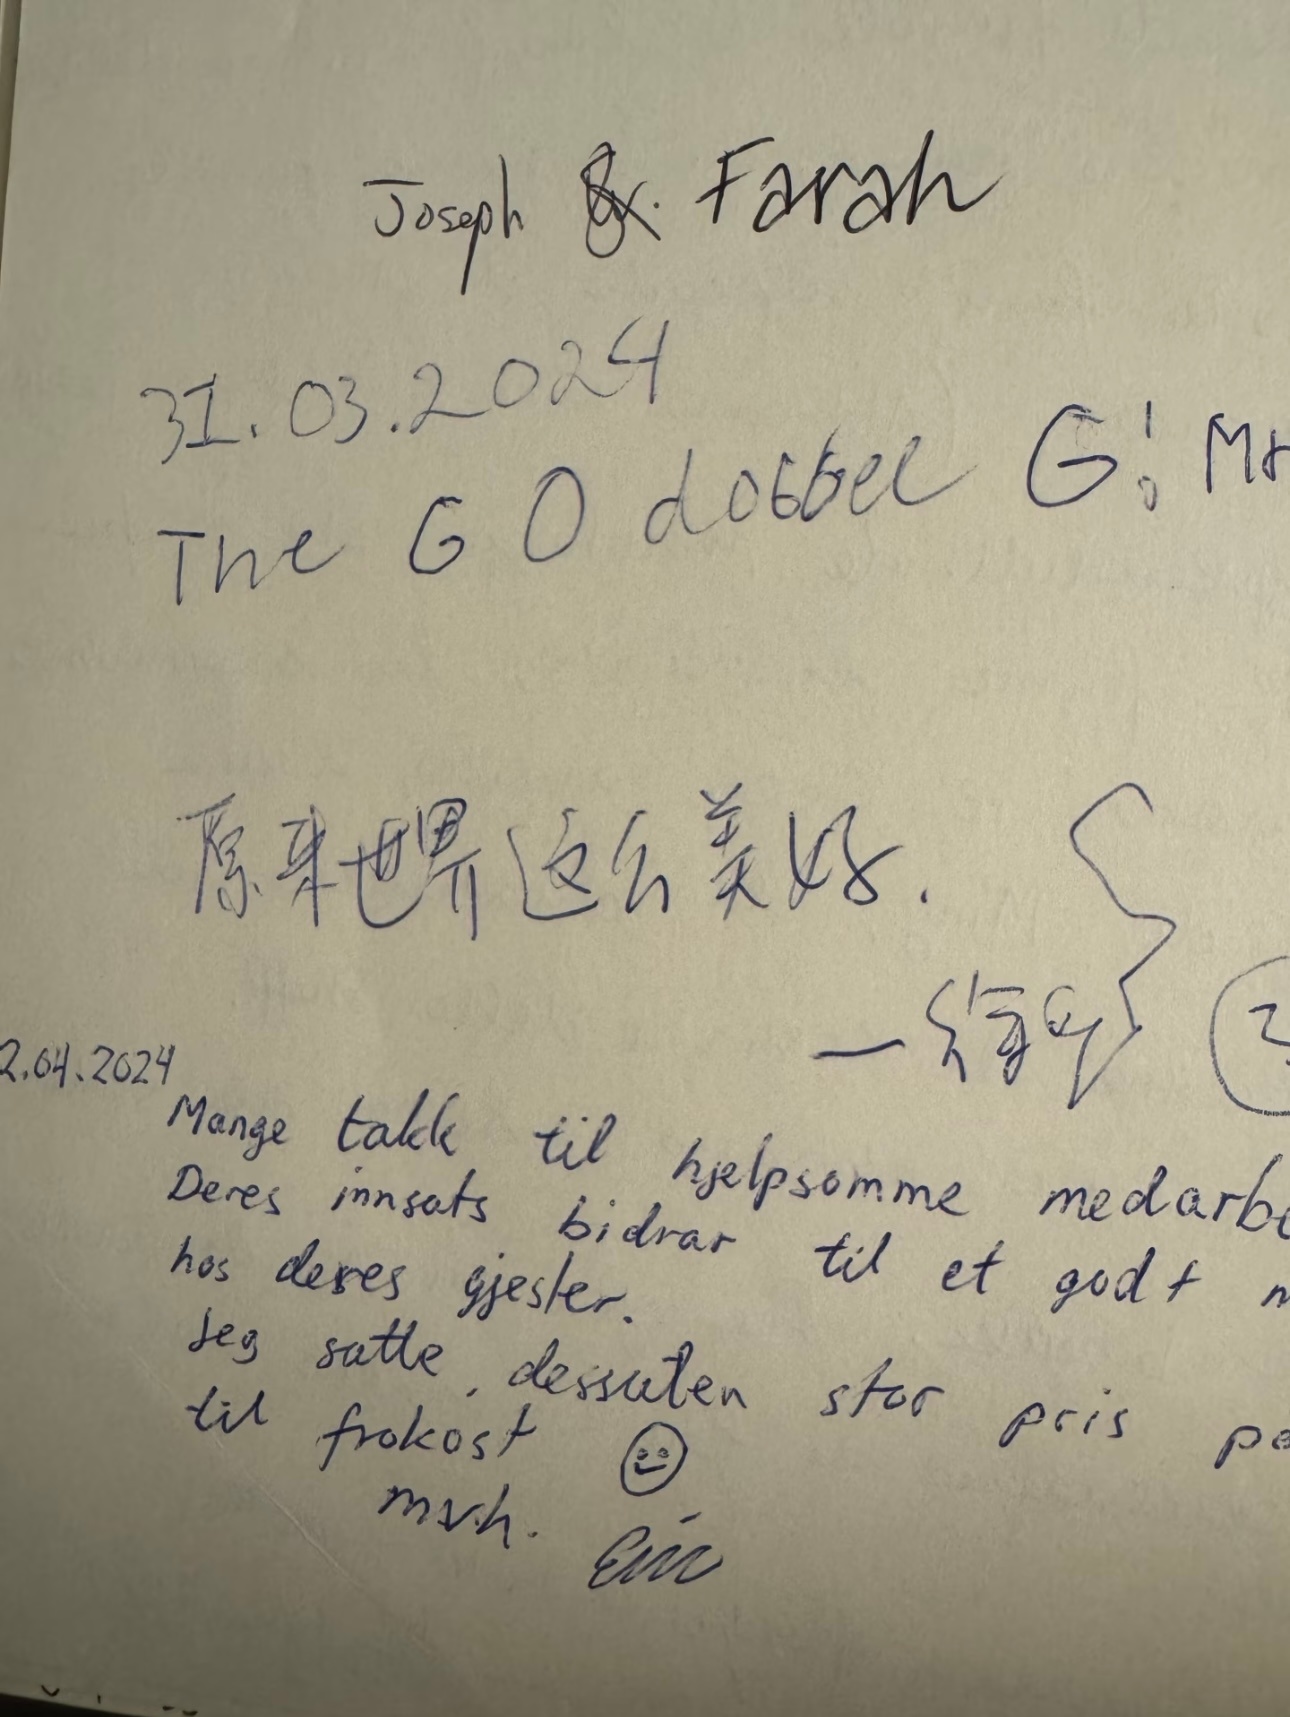 Joseph & Farah
31.03.2024
The G O dobbel G!
原来世界这么美好.
2.04.2024
Mange takk til hjelpsomme
Deres innsats bidrar til et godt
hos deres gjester.
Jeg satte, dessuten stor pris
til frokost
mvh.